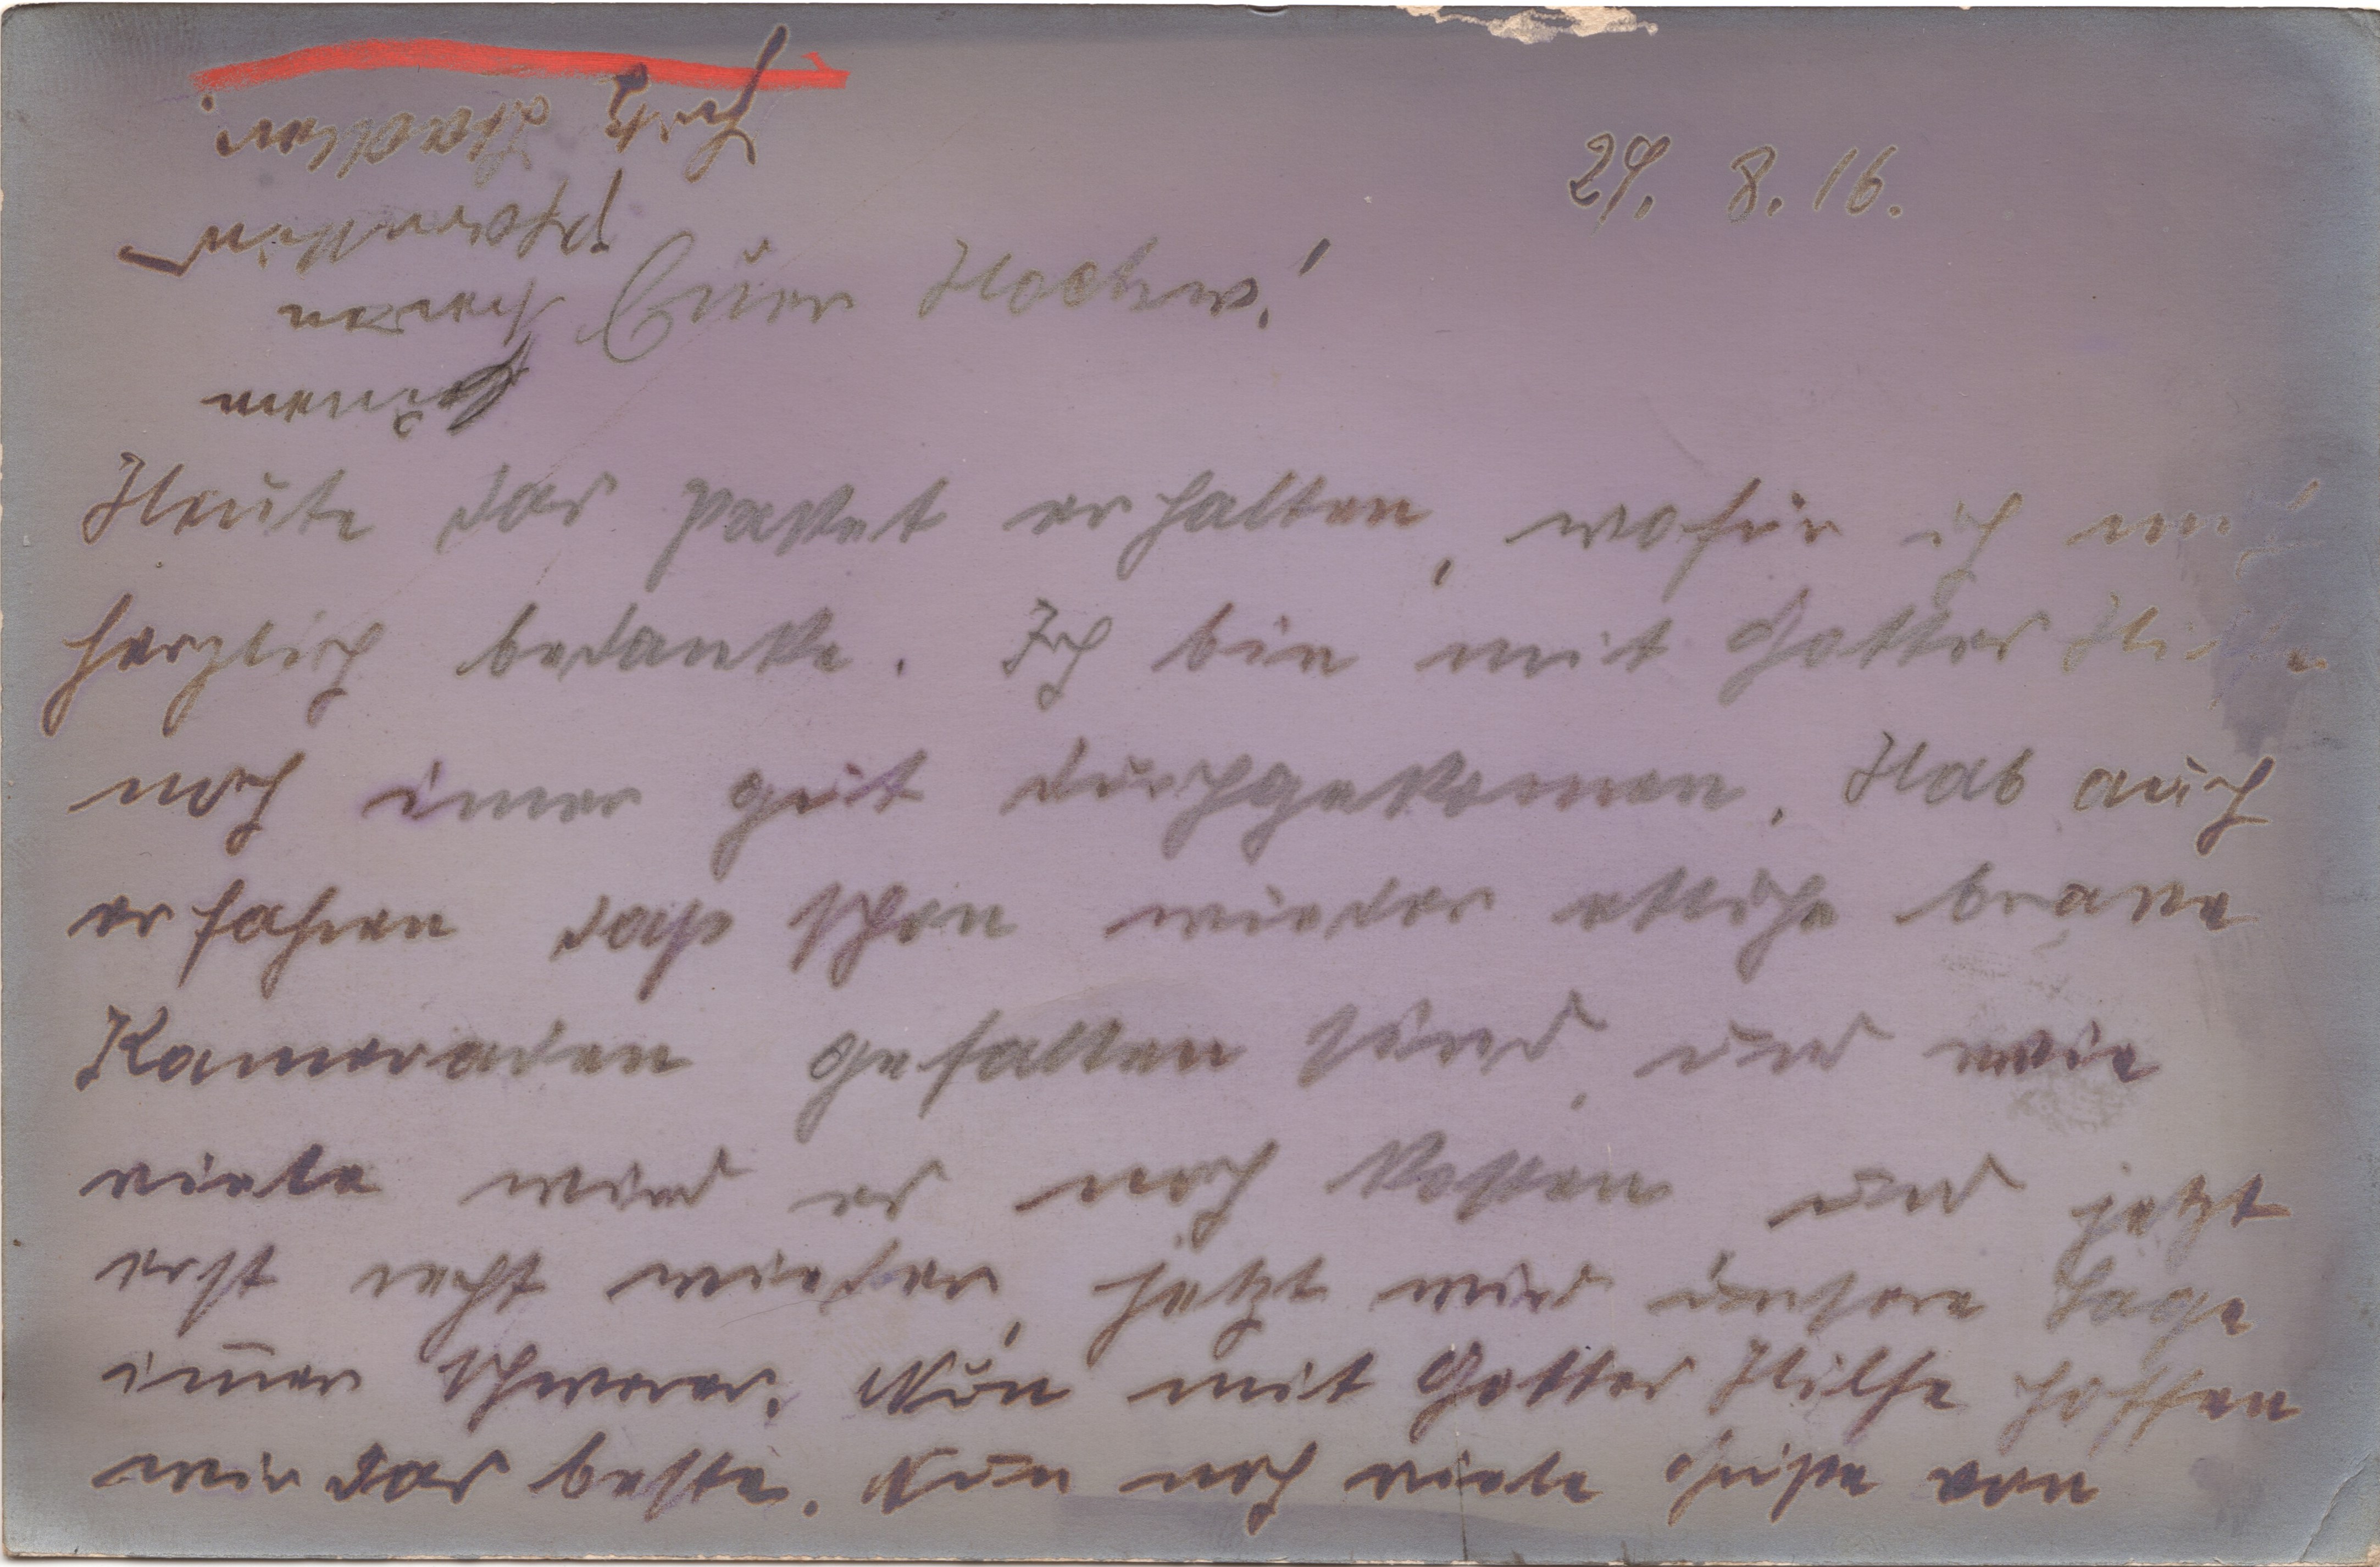 29. 8. 16.
Euer Hochw!
Heute das Paket erhalten, wofür ich mich
herzlich bedanke. Ich bin mit Gottes Hilfe
noch imer gut durchgekomen. Hab auch
erfahren daß schon wieder etliche brave
Kameraden gefallen sind, und wie
viele wird es noch kosten und jetzt
erst recht wieder, jetzt wird unsere Lage
im̄er schwerer. Nun mit Gottes Hilfe hoffen
wir das beste. Nun noch viele Grüße von
Eurem
treuen
Pfarrkind
Fritz Stadler.